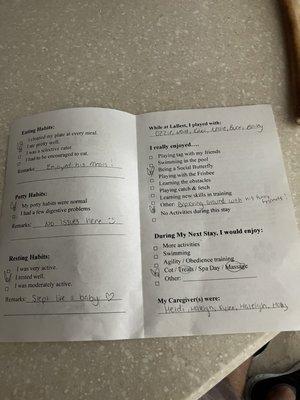 Eating Habits:
I cleaned my plate at every meal.
I ate pretty well.
I was a selective eater
I had to be encouraged to eat.
Remarks: Enjoyed his meals!
Potty Habits:
My potty habits were normal
I had a few digestive problems
Remarks: No issues here ☺
Resting Habits:
I was very active.
I rested well.
I was moderately active.
Remarks: Slept like a baby ♡
While at LaBest, I played with:
Ozzie,
I really enjoyed….
Playing tag with my friends
Swimming in the pool
Being a Social Butterfly
Playing with the Frisbee
Learning the obstacles
Playing catch & fetch
Learning new skills in training
Other: Exploring around with his
No Activities during this stay
During My Next Stay, I would enjoy:
More activities
Swimming
Agility / Obedience training
Cot / Treats / Spa Day / Massage
Other:
My Caregiver(s) were:
Heidi, Haleigh, Kylee, Haleigh, Molly